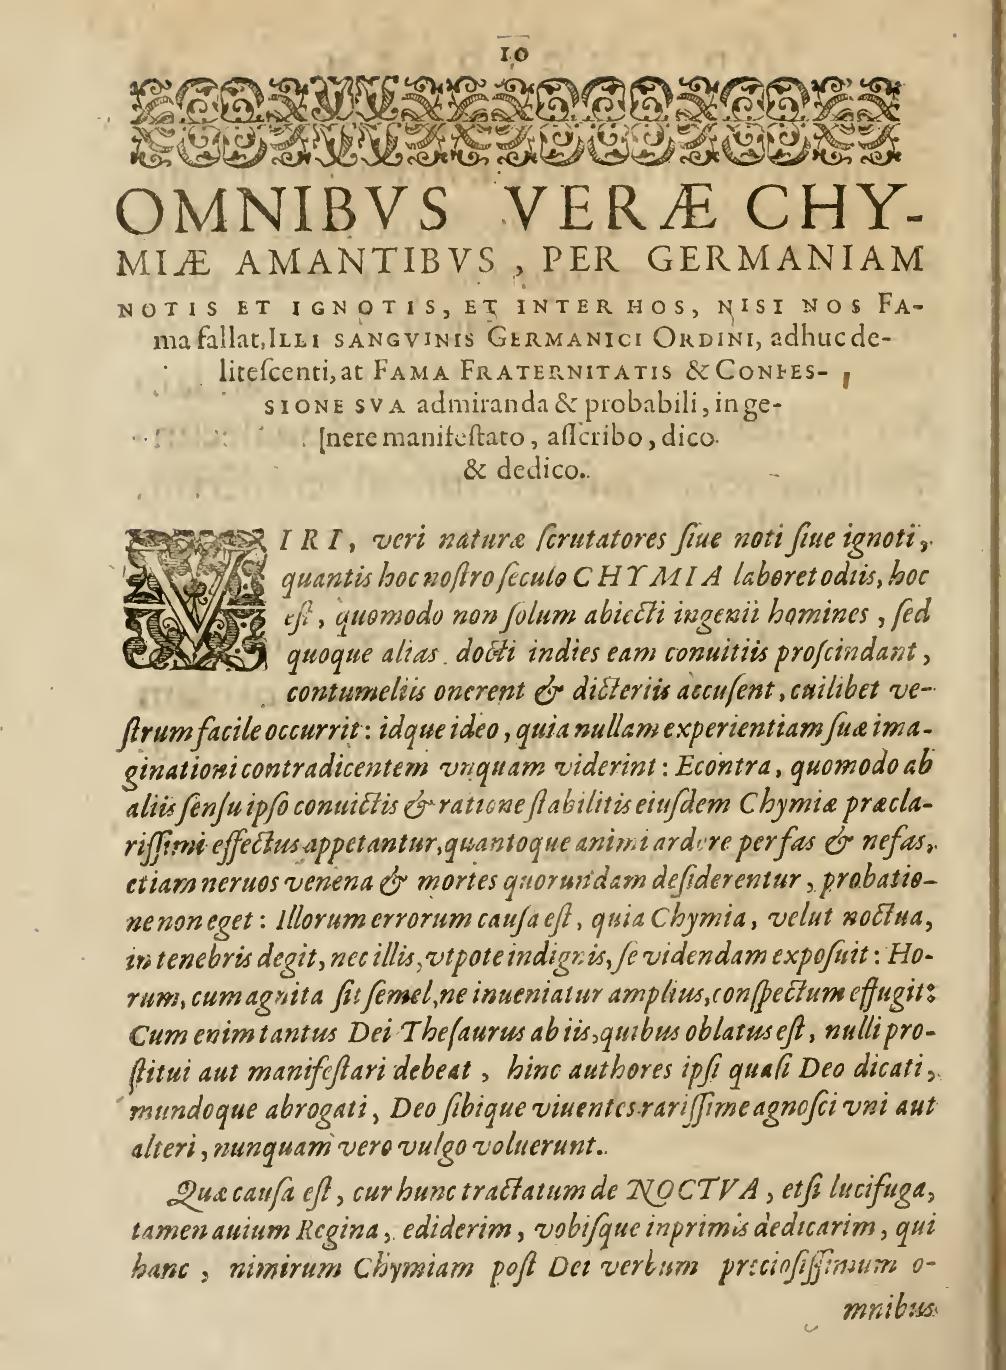 10
OMNIBVS VERÆ CHY-
MIÆ AMANTIBVS, PER GERMANIAM
NOTIS ET IGNOTIS, ET INTER HOS, NISI NOS FA-
ma fallat, ILLI SANGVINIS GERMANICI ORDINI, adhuc de-
liteſcenti, at FAMA FRATERNITATIS & CONFES-
SIONE SVA admiranda & probabili, in ge-
nere manifeſtato, aſſcribo, dico
& dedico.
VIRI, veri naturæ ſcrutatores ſiue noti ſiue ignoti,
quantis hoc noſtro ſeculo CHYMIA laboret odiis, hoc
eſt, quomodo non ſolum abiecti ingenii homines, ſed
quoque alias docti indies eam conuitiis proſcindant,
contumeliis onerent & dicteriis accuſent, cuilibet ve-
ſtrum facile occurrit: idque ideo, quia nullam experientiam ſuæ ima-
ginationi contradicentem vnquam viderint: Econtra, quomodo ab
aliis ſenſu ipſo conuictis & ratione ſtabilitis eiuſdem Chymiæ præcla-
riſſimi effectus appetantur, quantoque animi ardore per fas & nefas,
etiam neruos venena & mortes quorundam deſiderentur, probatio-
ne non eget: Illorum errorum cauſa eſt, quia Chymia, velut noctua,
in tenebris degit, nec illis, vtpote indignis, ſe videndam expoſuit: Ho-
rum, cum agnita ſit ſemel, ne inueniatur amplius, conſpectum effugit:
Cum enim tantus Dei Theſaurus ab iis, quibus oblatus eſt, nulli pro-
ſtitui aut manifeſtari debeat, hinc authores ipſi quaſi Deo dicati,
mundoque abrogati, Deo ſibique viuentes rariſſime agnoſci vni aut
alteri, nunquam vero vulgo voluerunt.
Quæ cauſa eſt, cur hunc tractatum de NOCTVA, etſi lucifuga,
tamen auium Regina, ediderim, vobiſque inprimis dedicarim, qui
hanc, nimirum Chymiam poſt Dei verbum precioſiſſimum o-
mnibus